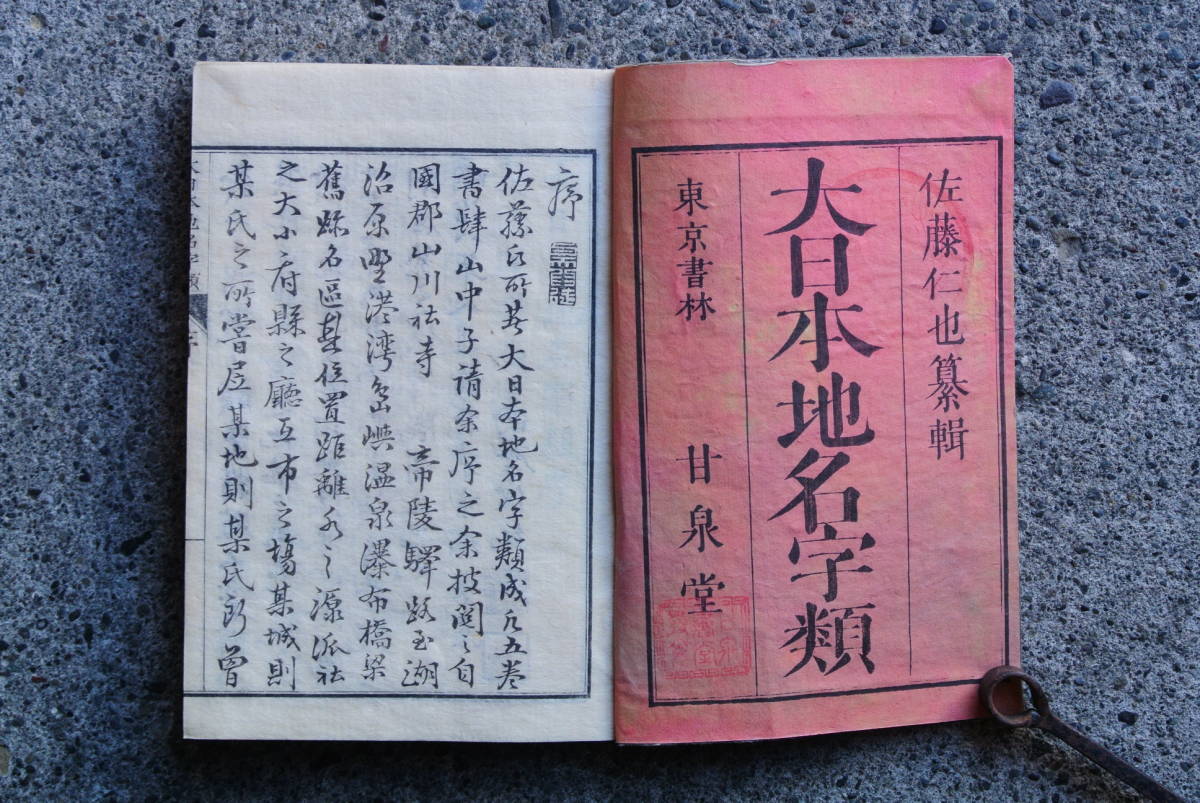 佐藤仁也纂輯
大日本地名字類
東京書林 甘泉堂
序
佐藤氏所著大日本地名字類成凡五巻
書肆山中子請余序之余披閲之自
國郡山川社寺 帝陵驛路至湖
沼原野港湾島嶼温泉瀑布橋梁
舊跡名區其位置距離水之源派社
之大小府縣之廳互市之場某城則
某氏之所嘗居某地則某氏所曾